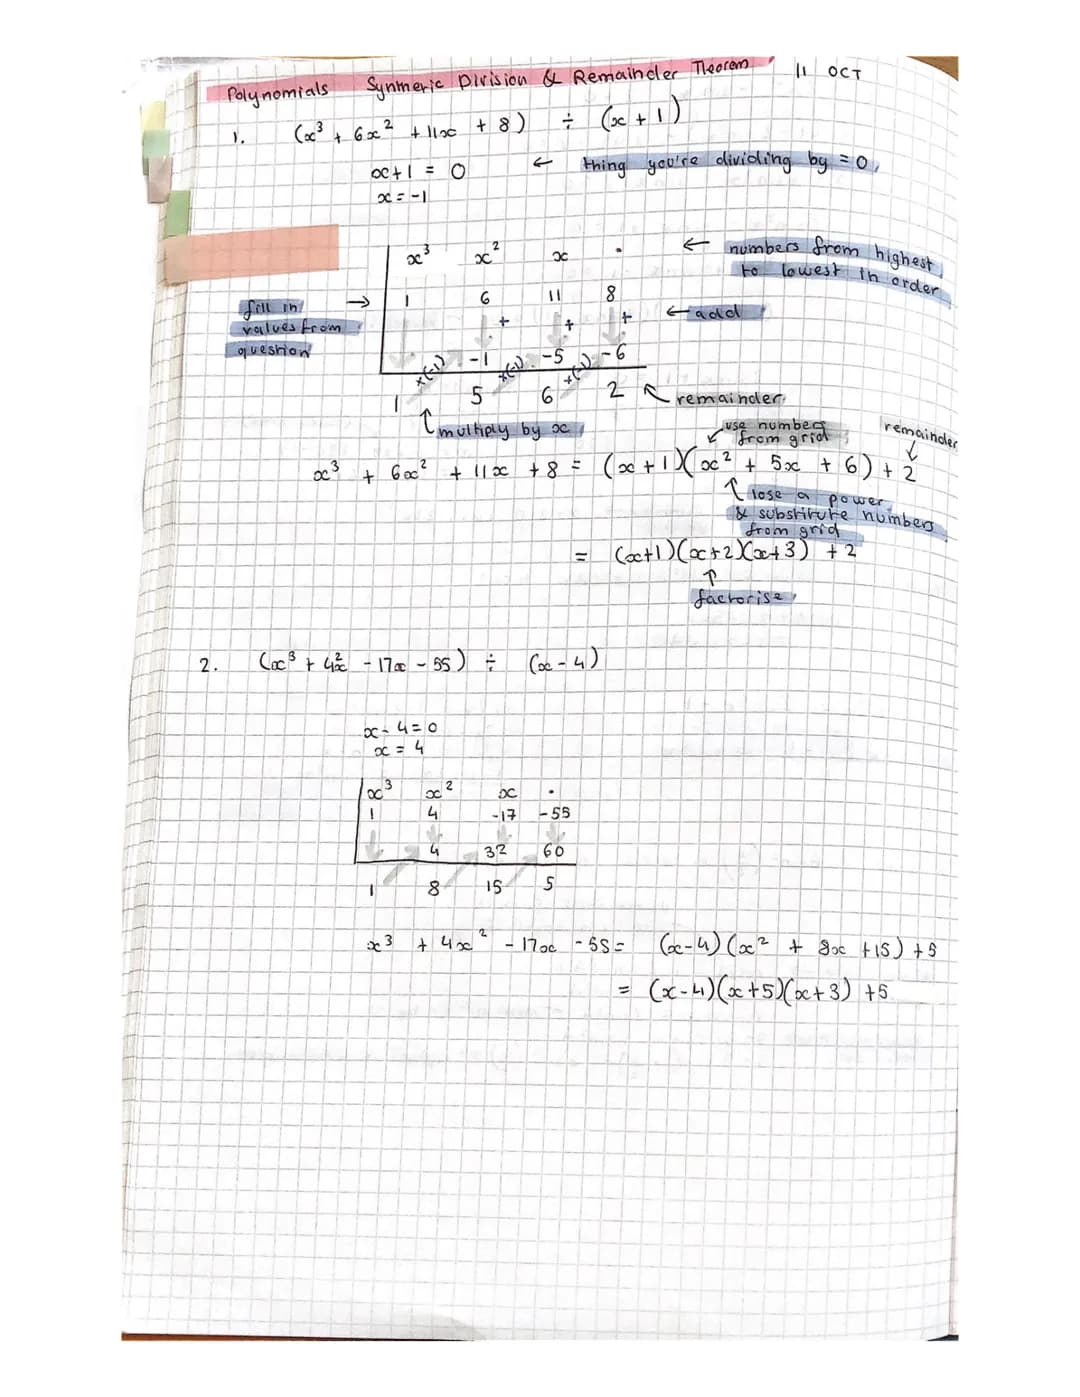 Polynomials Synmeric Division & Remainder Theorem 11 OCT
1. (x³ + 6x² + 11x + 8) ÷ (x + 1)
x+1 = 0 ← thing you're dividing by = 0,
x = -1
x³ x² x • ← numbers from highest
to lowest in order
fill in → 1 6 11 8
values from + + + ← add
question
x(-1) -1 x(-1) -5 x(-1) -6
1 5 6 2 remainder
multiply by x
use numbers
from grid
remainder
x³ + 6x² + 11x + 8 = (x + 1)(x² + 5x + 6) + 2
↑ lose a power
& substitute numbers
from grid
= (x+1)(x+2)(x+3) + 2
↑
factorise
2. (x³ + 4x² - 17x - 55) ÷ (x - 4)
x - 4 = 0
x = 4
x³ x² x •
1 4 -17 -55
4 32 60
1 8 15 5
x³ + 4x² - 17x - 55 = (x-4)(x² + 8x + 15) + 5
= (x-4)(x+5)(x+3) + 5